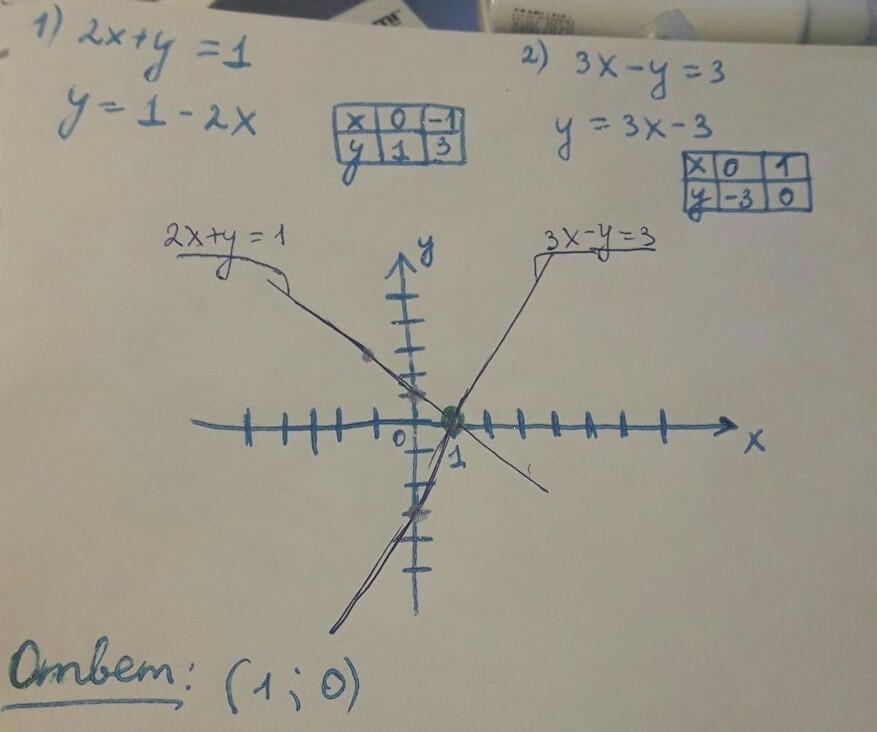 1) 2x+y=1
y = 1 - 2x
x 0 -1
y 1 3
2) 3x-y=3
y = 3x-3
x 0 1
y -3 0
2x+y=1
3x-y=3
y
0
1
x
Ответ: (1; 0)